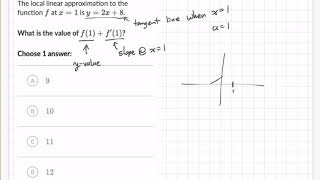 The local linear approximation to the
function f at x = 1 is y = 2x + 8.
tangent line when x=1
a=1
What is the value of f(1) + f'(1)?
slope @ x=1
y-value
Choose 1 answer:
A 9
B 10
C 11
D 12
1